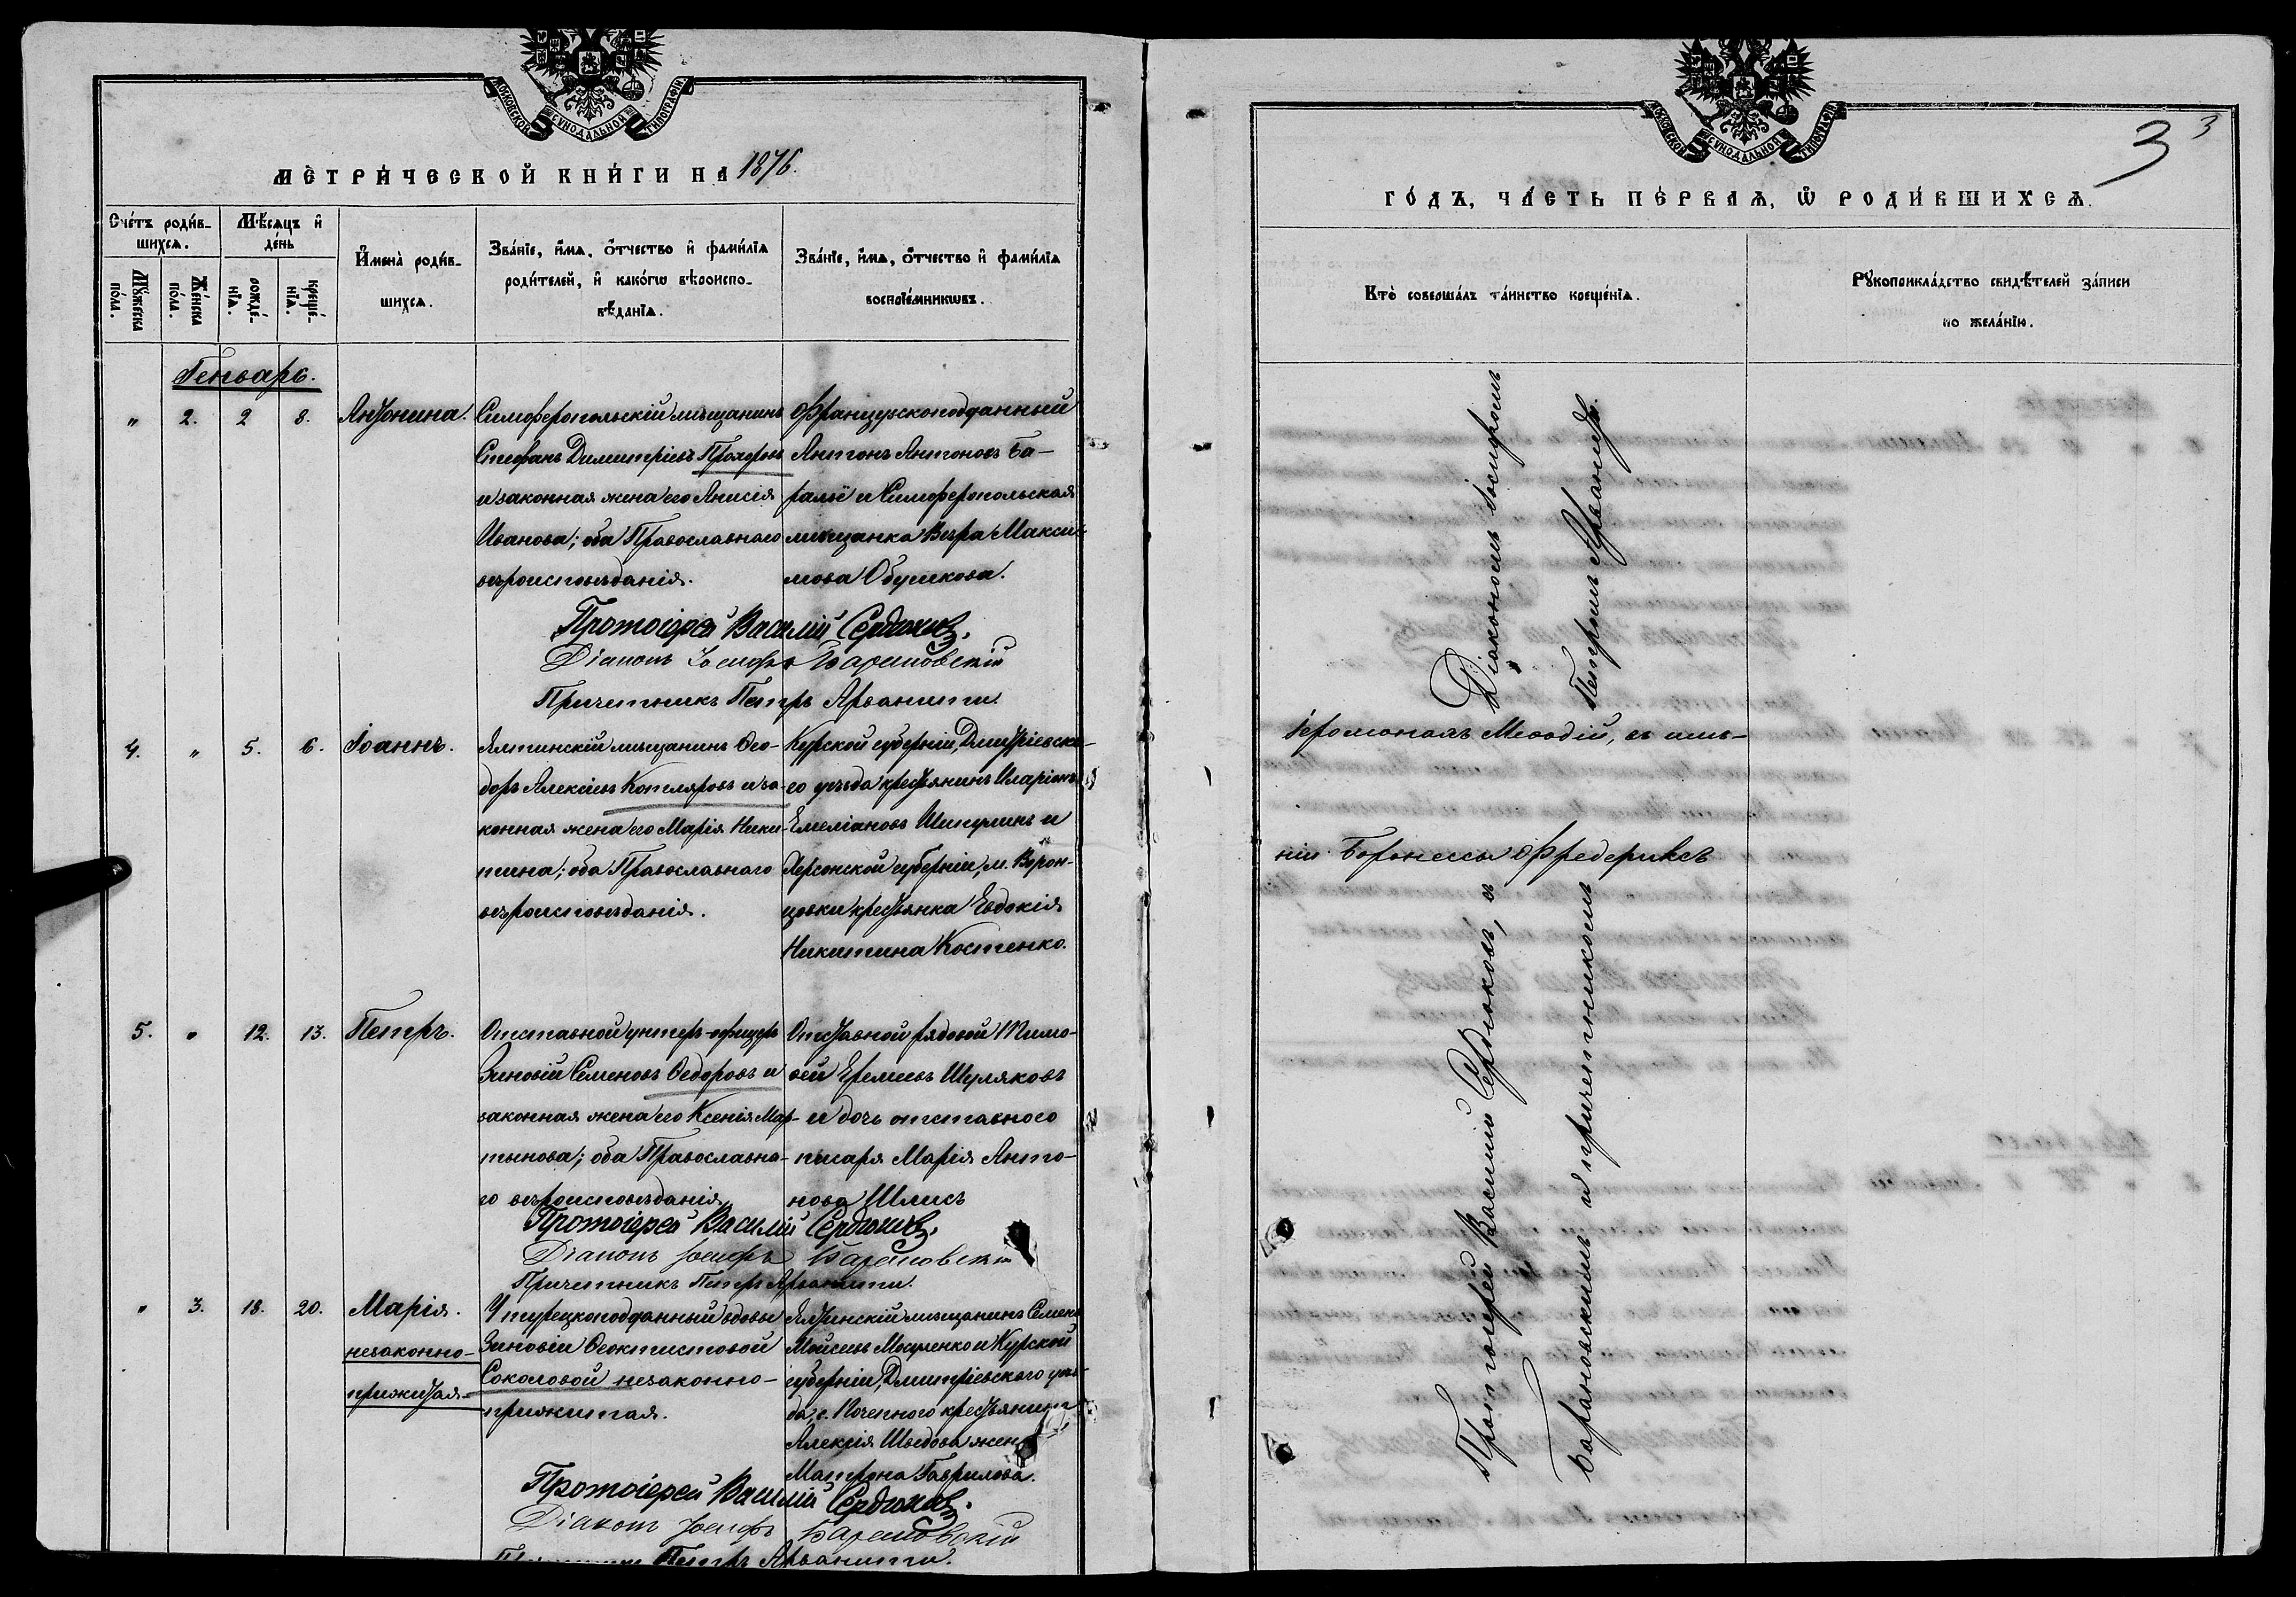 МОСКОВСКОЙ СѴНОДАЛЬНОЙ ТИПОГРАФІИ
МЕТРИ́ЧЕСКОЙ КНИ́ГИ НА 1876.
Сче́тъ роди́в-
шихся.
Мѣ́сяцъ и҆
де́нь
Му́жеска
по́ла.
Же́нска
по́ла.
рожде́-
нїѧ.
креще́-
нїѧ.
И҆мена̀ роди́в-
шихсѧ.
Зва́нїе, и҆́мѧ, ѻ҆́тчество и҆ фами́лїѧ
роди́телей, и҆ како́гѡ вѣроиспо-
вѣ́данїѧ.
Зва́нїе, и҆́мѧ, ѻ҆́тчество и҆ фами́лїѧ
воспрїе́мникѡвъ.
Генварь.
" 2. 2 8. Антонина.
Симферопольскій мѣщанинъ
Стефанъ Димитріевъ
и законная жена его Анисія
Иванова; оба Православнаго
вѣроисповѣданія.
Французскоподданный
Антонъ Антоновъ Ба-
ралѣ и Симферопольская
мѣщанка Вѣра Макси-
мова
Протоіерей Василій Сердюковъ.
Діаконъ Іосифъ Барановскій
Причетникъ Петръ Арванити.
4. " 5. 6. Іоаннъ.
Ялтинскій мѣщанинъ Ѳео-
доръ Алексѣевъ Котляровъ и за-
конная жена его Марія Ники-
тина; оба Православнаго
вѣроисповѣданія.
Курской губерніи, Дмитріевска-
го уѣзда крестьянинъ Иларіонъ
Емеліановъ Шикулинъ и
Херсонской губерніи, м. Ворон-
цовки крестьянка Евдокія
Никитина Костенко.
5. " 12. 13. Петръ.
Отставной унтеръ-офицеръ
Зиновій Семеновъ Ѳедоровъ и
законная жена его Ксенія Мар-
тынова; оба Православна-
го вѣроисповѣданія
Отставной рядовой Тимо-
ѳей Еремѣевъ Шуляковъ
и дочь отставного
писаря Марія Анто-
нова
Протоіерей Василій Сердюковъ.
Діаконъ Іосифъ Барановскій
Причетникъ Петръ Арванити.
" 3. 18. 20. Марія.
незаконно-
прижитая.
У турецкоподданный вдовы
Зиновіи Ѳеоктистовой
Соколовой незаконно-
прижитая.
Ялтинскій мѣщанинъ Семенъ
Моисеевъ Мосуренко и Курской
губерніи, Дмитріевскаго уѣз-
да, с. Поченного крестьянина
Алексія Шведова жена
Матрона Гаврилова.
Протоіерей Василій Сердюковъ.
Діаконъ Іосифъ Барановскій
Петръ Арванити.
МОСКОВСКОЙ СѴНОДАЛЬНОЙ ТИПОГРАФІИ
3 3
ГО́ДЪ, ЧА́СТЬ ПЕ́РВАѦ, Ѡ҆ РОДИ́ВШИХСѦ.
Кто̀ соверша́лъ та́инство креще́нїѧ.
Рꙋкоприкла́дство свидѣ́телей за́писи
по жела́нїю.
Протоіерей Василій Сердюковъ, съ Діакономъ Іосифомъ
Барановскимъ и причетникомъ Петромъ Арванити.
Іеромонахъ Меѳодій, въ имѣ-
ніи Баронессы Фредериксъ